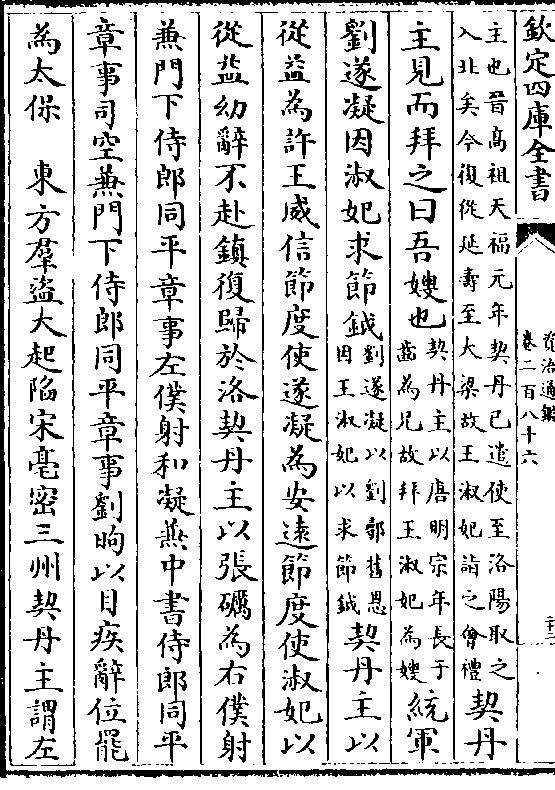 欽定四庫全書
資治通鑑
卷二百八十六
主也晉高祖天福元年契丹已遣使至洛陽取之
入北矣今復從延壽至大梁故王淑妃詣之會禮
契丹
主見而拜之曰吾嫂也
契丹主以唐明宗年長于
齒為兄故拜王淑妃為嫂
統軍
劉遂凝因淑妃求節鉞
劉遂凝以劉鄩舊恩
因王淑妃以求節鉞
契丹主以
從益為許王威信節度使遂凝為安遠節度使淑妃以
從益幼辭不赴鎮復歸於洛契丹主以張礪為右僕射
兼門下侍郎同平章事左僕射和凝兼中書侍郎同平
章事司空兼門下侍郎同平章事劉昫以目疾辭位罷
為太保　東方羣盜大起陷宋亳密三州契丹主謂左